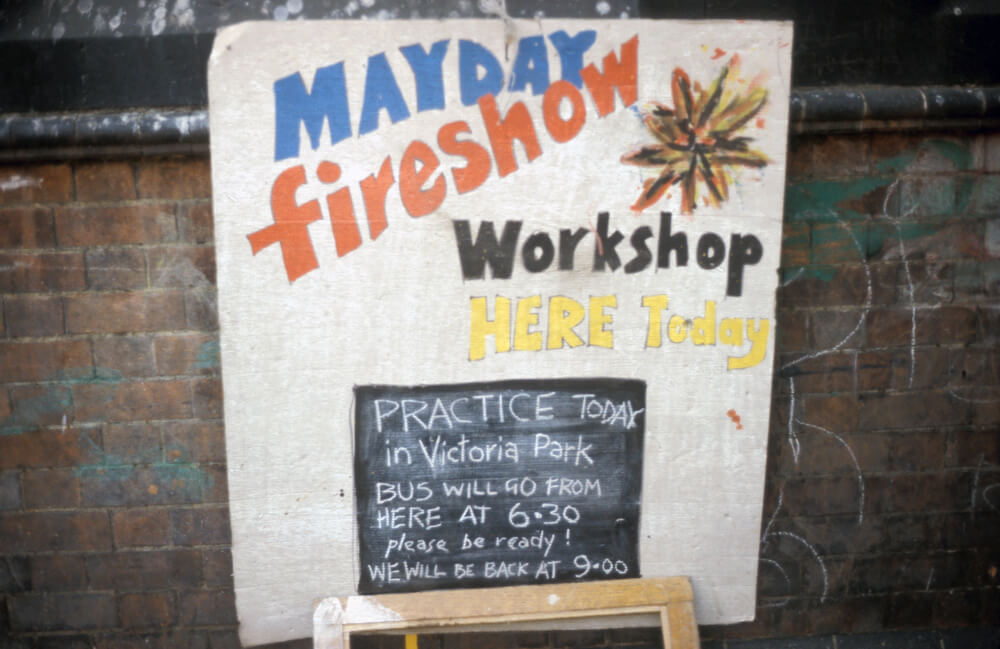 MAYDAY
fireshow
Workshop
HERE Today
PRACTICE TODAY
in Victoria Park
BUS WILL GO FROM
HERE AT 6.30
please be ready!
WE WILL BE BACK AT 9.00